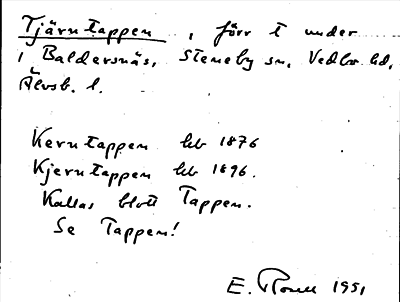 Tjärntappen, förr t under
i Baldersnäs, Steneby sn, Vedbo hd,
Älvsb. l.
Kerntappen hb 1876
Kjerntappen hb 1896.
Kallas blott Tappen.
Se Tappen!
E. 1951